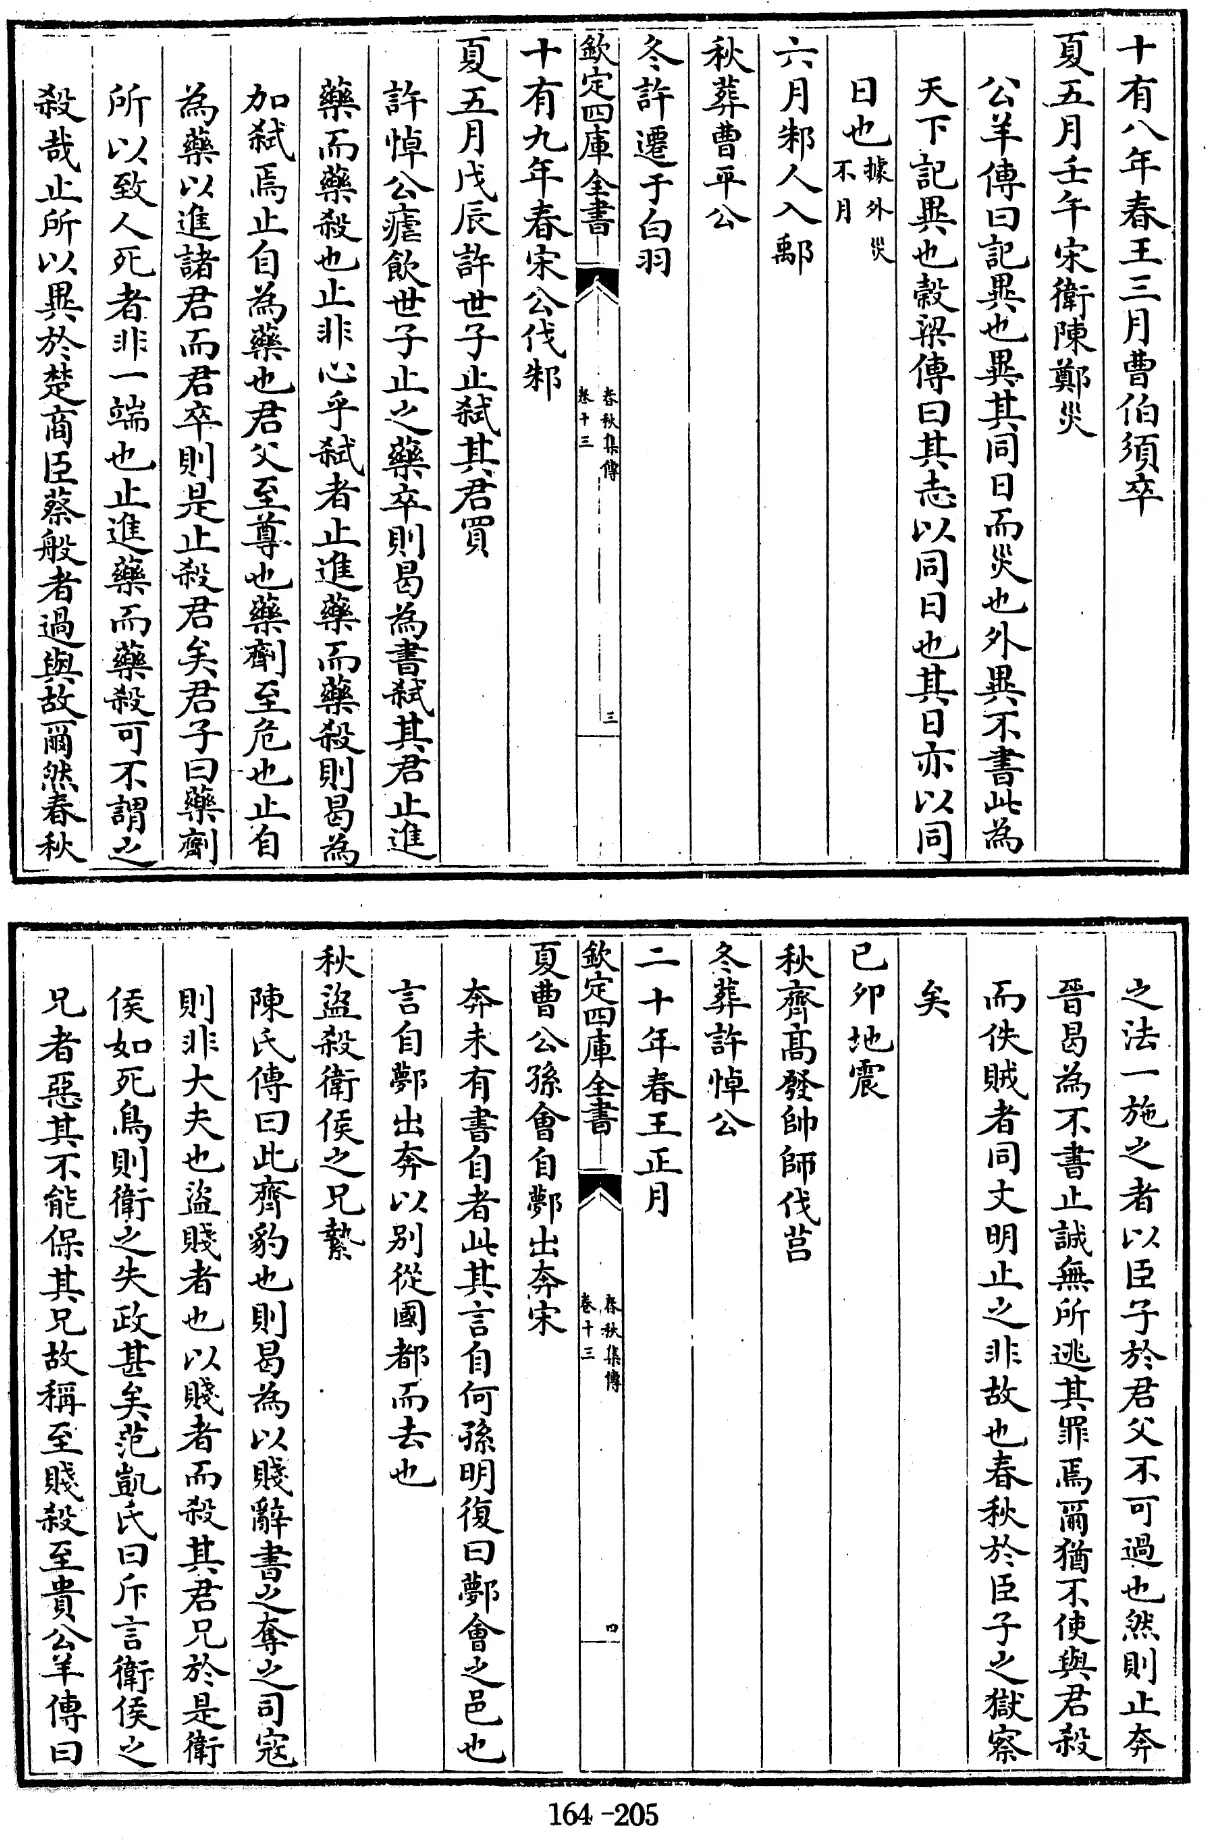 十有八年春王三月曹伯須卒
夏五月壬午宋衛陳鄭災
公羊傳曰記異也異其同日而災也外異不書此為
天下記異也穀梁傳曰其志以同日也其日亦以同
日也據外災不月
六月邾人入鄅
秋葬曹平公
冬許遷于白羽
欽定四庫全書
春秋集傳
卷十三
三
十有九年春宋公伐邾
夏五月戊辰許世子止弑其君買
許悼公瘧飲世子止之藥卒則曷為書弑其君止進
藥而藥殺也止非心乎弑者止進藥而藥殺則曷為
加弑焉止自為藥也君父至尊也藥劑至危也止自
為藥以進諸君而君卒則是止殺君矣君子曰藥劑
所以致人死者非一端也止進藥而藥殺可不謂之
殺哉止所以異於楚商臣蔡般者過與故爾然春秋
之法一施之者以臣子於君父不可過也然則止奔
晉曷為不書止誠無所逃其罪焉爾猶不使與君殺
而佚賊者同文明止之非故也春秋於臣子之獄察
矣
已卯地震
秋齊髙發帥師伐莒
冬葬許悼公
二十年春王正月
欽定四庫全書
春秋集傳
卷十三
四
夏曹公孫會自鄸出奔宋
奔未有書自者此其言自何孫明復曰鄸會之邑也
言自鄸出奔以别從國都而去也
秋盜殺衛侯之兄縶
陳氏傳曰此齊豹也則曷為以賤辭書之奪之司寇
則非大夫也盜賤者也以賤者而殺其君兄於是衛
侯如死鳥則衛之失政甚矣范凱氏曰斥言衛侯之
兄者惡其不能保其兄故稱至賤殺至貴公羊傳曰
164-205